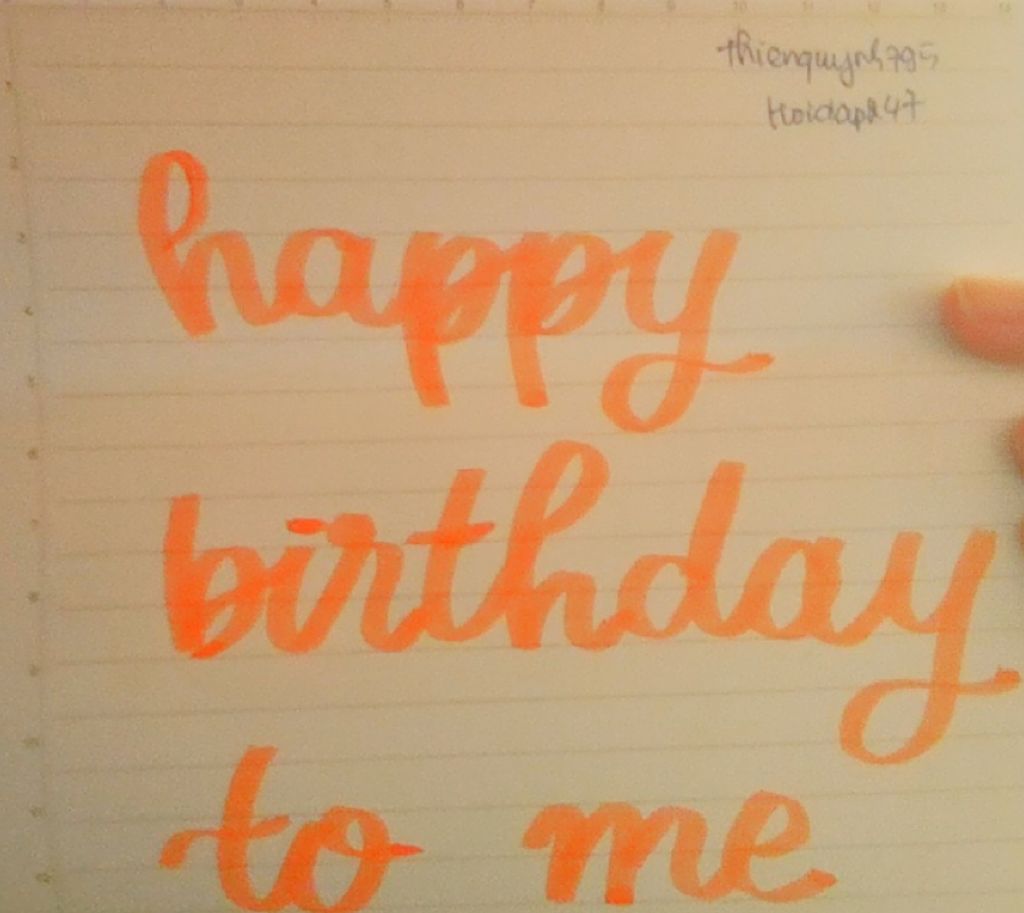 thienquynh795
Hoidap247
happy
birthday
to me